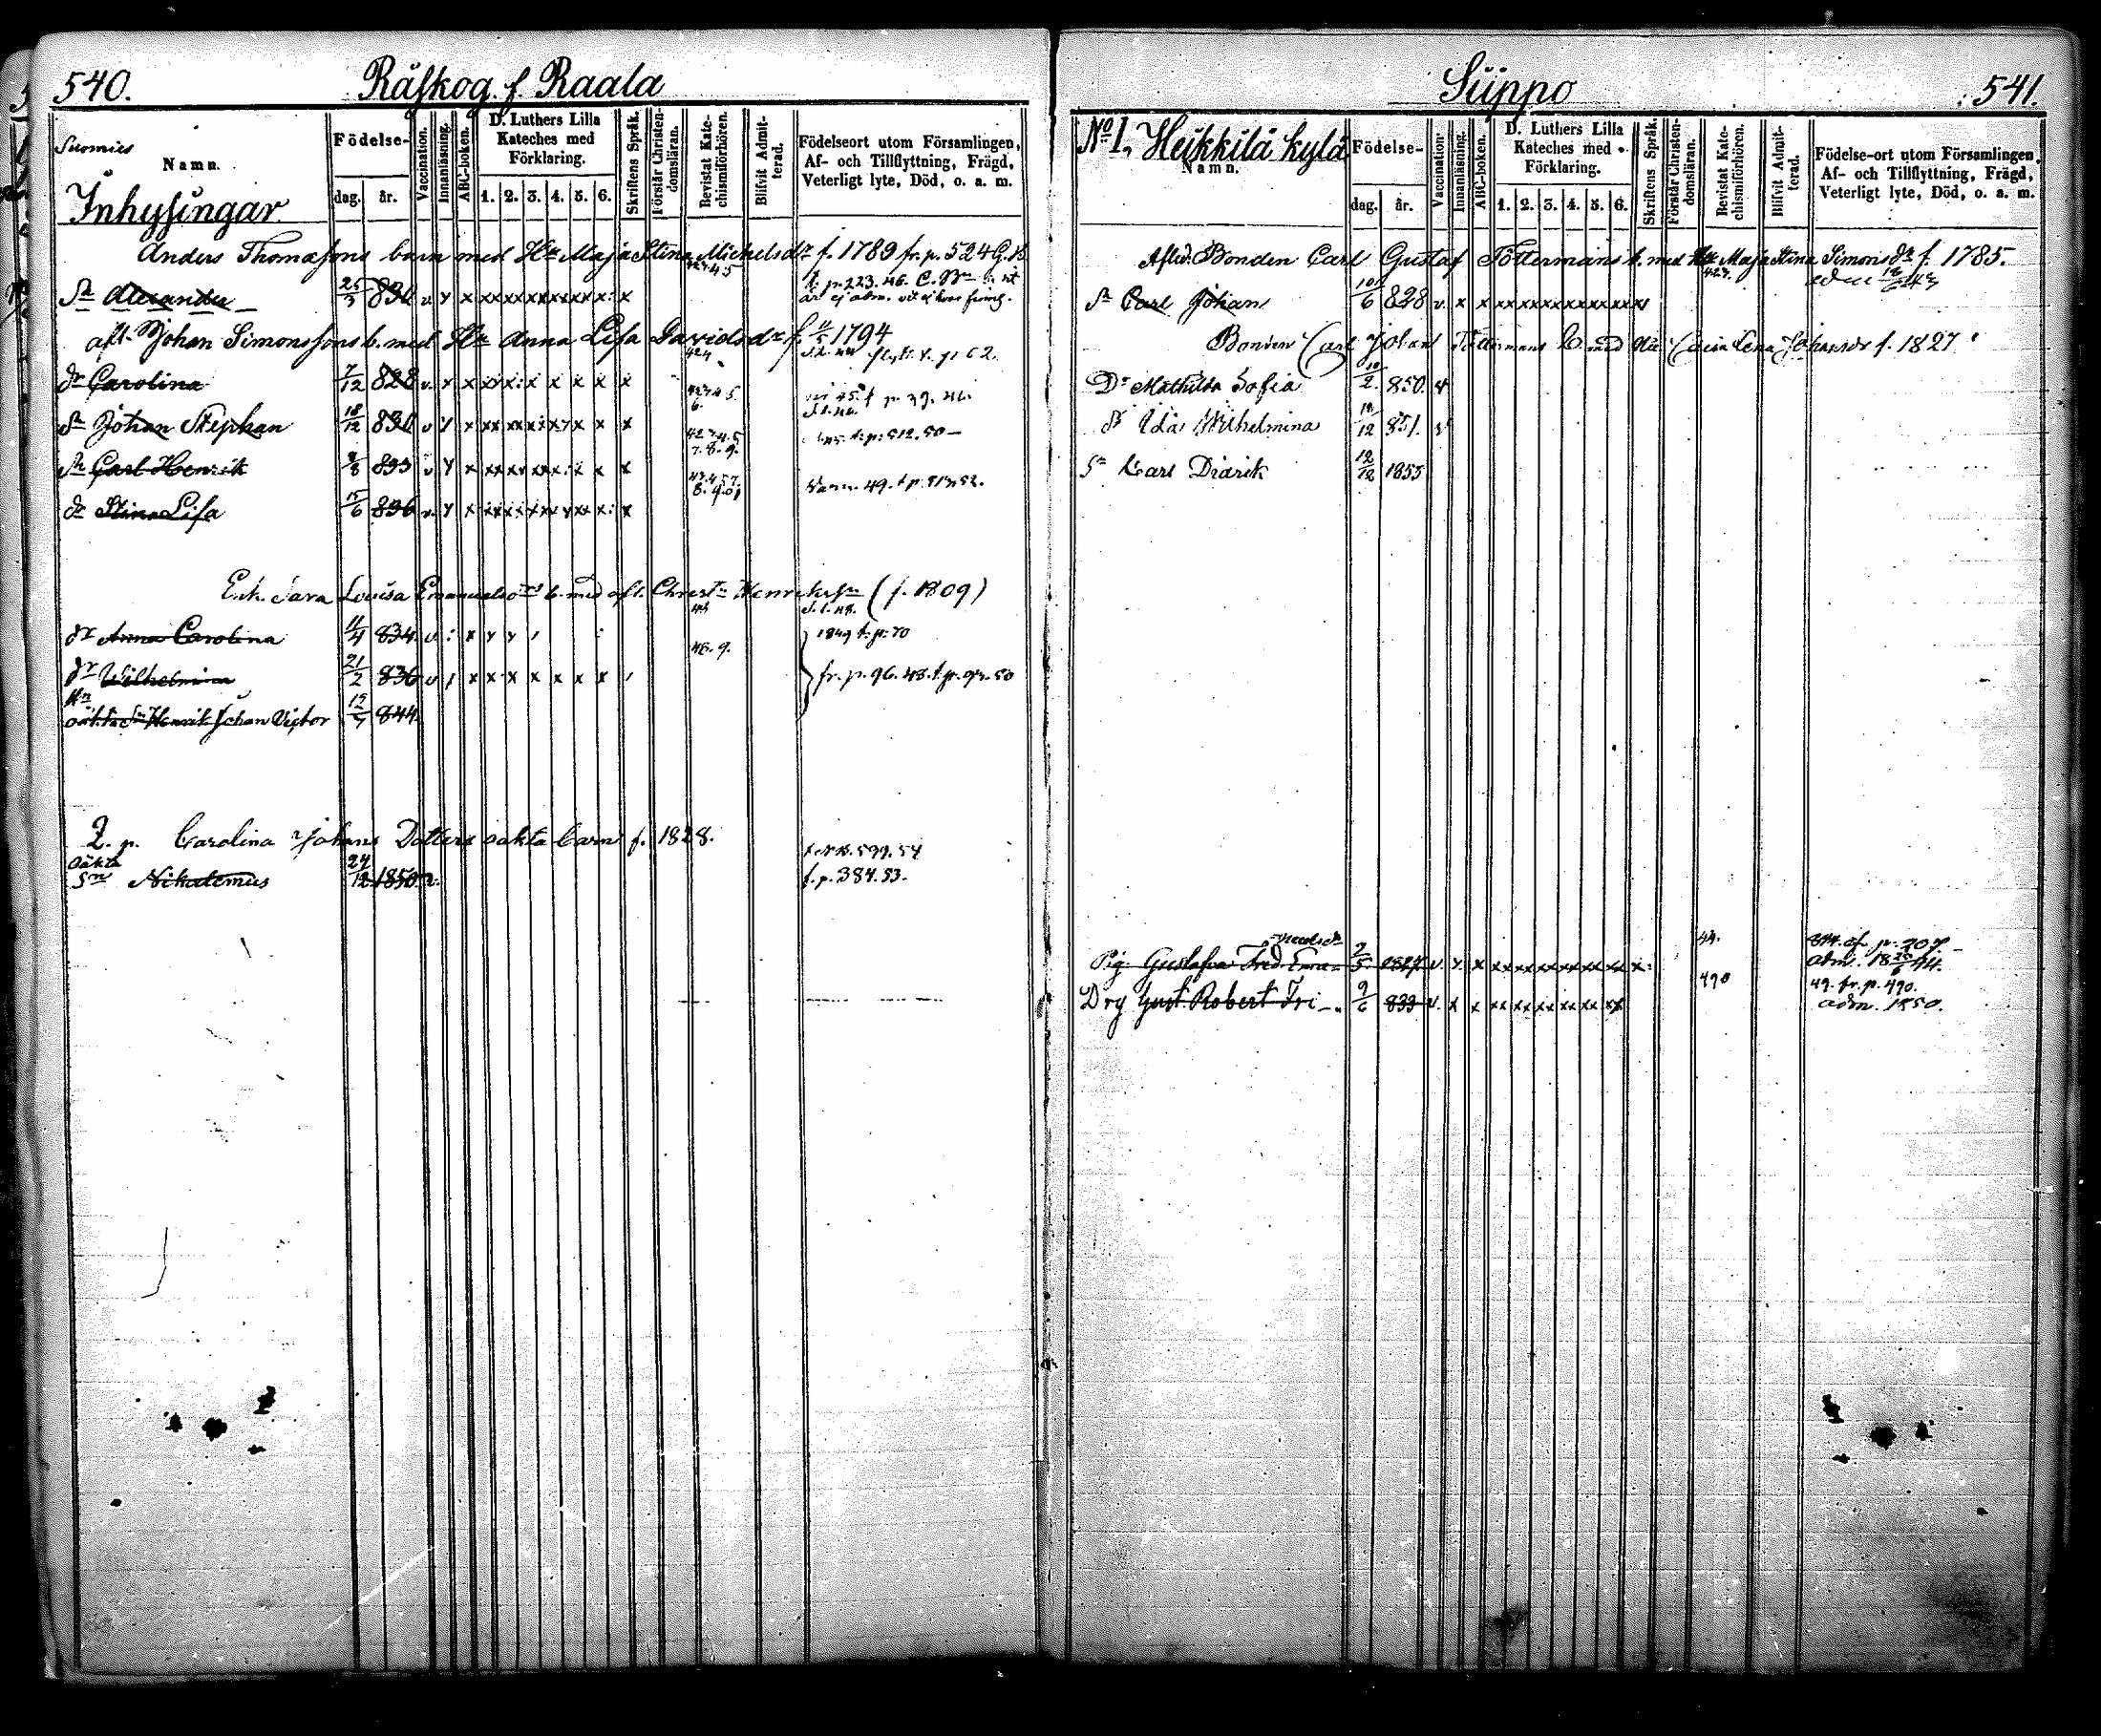 540. Räskog. f. Raala
Suomies
Namn.
Inhysingar
Födelse-
dag. år.
Vaccination.
Innanläsning.
ABC-boken.
D. Luthers Lilla
Kateches med
Förklaring.
1. 2. 3. 4. 5. 6.
Skriftens Språk.
Förstår Christen-
domsläran.
Bevistat Kate-
chismiförhören.
Blifvit Admit-
terad.
Födelseort utom Församlingen,
Af- och Tillflyttning, Frägd,
Veterligt lyte, Död, o. a. m.
Anders Thomassons barn med Hu Maja Stina Michelsdr f. 1789 fr. p. 524
Sn Alexander 25/3 834 v
t. p. 223. 46.
aft. Johan Simonssons b. med Hu Anna Lisa Davidsdr f. 1794
dr Carolina 7/12 828 v.
Sn Johan Stephan 18/12 830 v
t. p. 39. 46.
Sn Carl Henrik 8/8 833 v
t. p. 512. 50
dr Stina Lisa 15/6 836 v.
49. t. p. 513. 52.
Enk. Sara Lovisa Emanuelsdrs b. med aft. Christn Henrikssn (f. 1809)
dr Anna Carolina 11/4 834 v
1849 t. p. 70
dr Wilhelmina 21/2 836 v
48. 9.
fr. p. 96. 48. t. p. 93. 50
oäkta Sn Henrik Johan Victor 844
2. p. Carolina Johans Dotters oäkta barn f. 1828.
599. 54
oäkta
Sn Nikodemus 24/12 1850 v.
f. p. 384. 53.
Siippo 541.
No 1. Heikkilä kylä
Namn.
Födelse-
dag. år.
Vaccination.
Innanläsning.
ABC-boken.
D. Luthers Lilla
Kateches med
Förklaring.
1. 2. 3. 4. 5. 6.
Skriftens Språk.
Förstår Christen-
domsläran.
Bevistat Kate-
chismiförhören.
Blifvit Admit-
terad.
Födelse-ort utom Församlingen,
Af- och Tillflyttning, Frägd,
Veterligt lyte, Död, o. a. m.
Aflid. Bonden Carl Gustaf Töttermans b. med Hu Maja Stina Simonsdr f. 1785.
Sn Carl Johan 10/6 828 v.
Bonden Carl Johan Töttermans b. med Hu Caisa Lena Johansdr f. 1827
Dr Mathilda Sofia 10/2. 850. v
dr Ida Wilhelmina 851. v
Sn Carl Didrik 12/12 1855
Pig. Gustafva Fred. 2/5 1827 v.
44.
844. af p. 207
adm. 44.
Drg Gust. Robert Fri 9/6 833 v.
490
49. fr. p. 490.
adm. 1850.